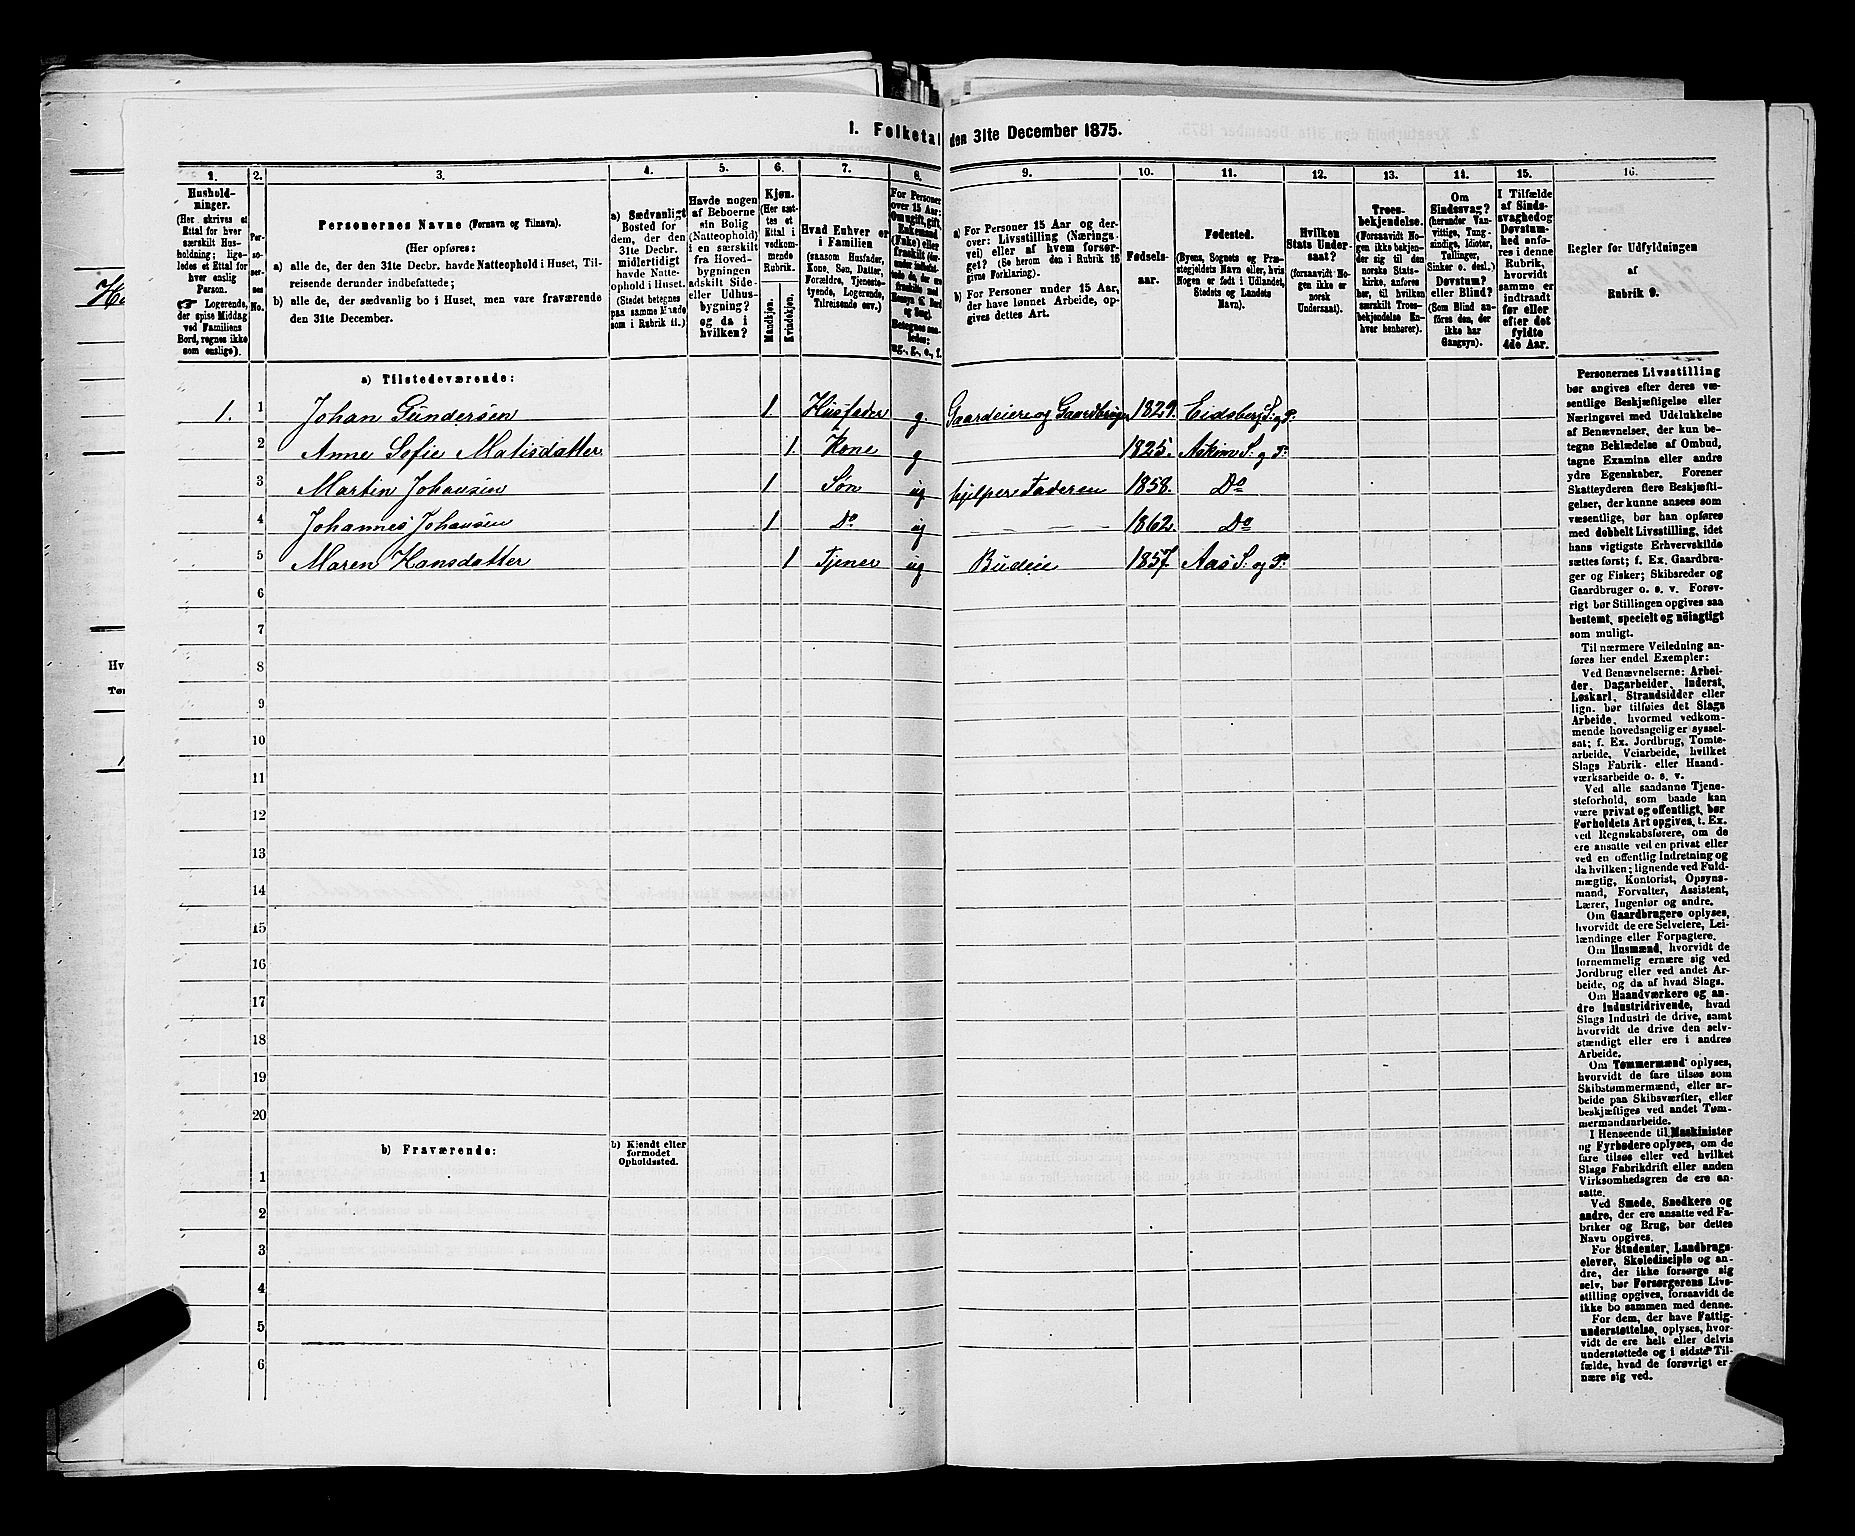 1. Folketal den 31te December 1875.
1. 2. 3. 4. 5. 6. 7. 8. 9. 10. 11. 12. 13. 14. 15. 16.
Hushold-
ninger.
(Her skrives et
Ettal for hver
særskilt Hus-
holdning; lige-
ledes et Ettal for
hver enslig
Person.
Logerende,
der spise Middag
ved Familiens
Bord, regnes ikke
som enslige).
Per-
so-
ner-
nes
No.
Personernes Navne (Fornavn og Tilnavn).
(Her opføres:
a) alle de, der den 31te Decbr. havde Natteophold i Huset, Til-
reisende derunder indbefattede;
b) alle de, der sædvanlig bo i Huset, men vare fraværende
den 31te December.
a) Sædvanligt
Bosted for
dem, der den
31te Decbr.
midlertidigt
havde Natte-
ophold i Huset.
(Stedet betegnes
paa samme Maade
som i Rubrik 11.)
Havde nogen
af Beboerne
sin Bolig
(Natteophold)
i en særskilt
fra Hoved-
bygningen
adskilt Side-
eller Udhus-
bygning?
og da i
hvilken?
Kjøn.
(Her sæt-
tes et
Ettal i
vedkom-
mende
Rubrik.
Mandkjøn.
Kvindekjøn.
Hvad Enhver er
i Familien
(saasom Husfader,
Kone, Søn, Datter,
Forældre, Tjeneste-
tyende, Logerende,
Tilreisende osv.)
For Personer
over 15 Aar:
Om ugift, gift,
Enkemand
(Enke) eller
fraskilt
Betegnes saa-
ledes:
ug., g., e., f.
a) For Personer 15 Aar og der-
over: Livsstilling (Nærings-
vei) eller af hvem forsør-
get? (Se herom den i Rubrik 16
givne Forklaring).
b) For Personer under 15 Aar,
der have lønnet Arbeide, op-
gives dettes Art.
Fødsels-
aar.
Fødested.
(Byens, Sognets og Præ-
stegjeldets Navn eller, hvis
Nogen er født i Udlandet,
Stedets og Landets
Navn).
Hvilken
Stats Under-
saat?
(forsaavidt No-
gen ikke er
norsk
Undersaat).
Troes-
bekjendelse.
(Forsaavidt No-
gen ikke bekjen-
der sig til den
norske Stats-
kirke, anføres
her, til hvilken
særskilt Troes-
bekjendelse En-
hver henhører).
Om
Sindssvag?
(herunder Van-
vittige, Tung-
sindige, Idioter,
Tullinger,
Sinker o. desl.)
Døvstum?
eller Blind?
(Som Blind an-
føres den, der
ikke har
Gangsyn).
I Tilfælde
af Sinds-
svaghed og
Døvstum-
hed anfø-
res i denne
Rubrik,
hvorvidt
samme er
indtraadt
før eller
efter det
fyldte
4de Aar.
Regler for Udfyldningen
af
Rubrik 9.
a) Tilstedeværende:
1. 1 Johan Gundersen 1. Husfader g. Gaardeier og Gaardbruger 1829. Eidsberg S: og P.
2 Anne Sofie Matisdatter 1. Kone g 1825. Askim S. og P.
3 Martin Johansen 1 Søn ug hjelper Faderen 1858. Do
4 Johannes Johansen 1. Do ug — — — 1862. Do
5 Maren Hansdatter 1 Tjener ug Budeie 1857. Aas S. og P.
6
7
8
9
10
11
12
13
14
15
16
17
18
19
20
b) Fraværende:
b) Kjendt eller
formodet
Opholdssted.
1
2
3
4
5
6
Personernes Livsstilling
bør angives efter deres væ-
sentlige Beskjæftigelse eller
Næringsvei med Udelukkelse
af Benævnelser, der kun be-
tegne Beklædelse af Ombud,
tagne Examina eller andre
ydre Egenskaber. Forener
Skatteyderen flere Beskjæfti-
gelser, der kunne ansees som
væsentlige, bør han opføres
med dobbelt Livsstilling, idet
hans vigtigste Erhvervskilde
sættes først; f. Ex. Gaardbru-
ger og Fisker; Skibsreder og
Gaardbruger o. s. v. Forøv-
rigt bør Stillingen opgives saa
bestemt, specielt og nöiagtigt
som muligt.
Til nærmere Veiledning an-
føres her endel Exempler:
Ved Benævnelserne: Arbei-
der, Dagarbeider, Inderst,
Løskarl, Strandsidder eller
lign. bør tilføies det Slags
Arbeide, hvormed vedkom-
mende hovedsagelig er syssel-
sat; f. Ex. Jordbrug, Tomte-
arbeide, Veiarbeide, hvilket
Slags Fabrik- eller Haand-
værksarbeide o. s. v.
Ved alle saadanne Tjene-
steforhold, som baade kan
være privat og offentligt, bør
Forholdets Art opgives, t. Ex.
ved Regnskabsførere, om de
ere ansatte ved en privat eller
ved en offentlig Indretning og
da hvilken; lignende ved Fuld-
mægtig, Kontorist, Opsyns-
mand, Forvalter, Assistent,
Lærer, Ingeniør og andre.
Om Gaardbrugere oplyses,
hvorvidt de ere Selveiere, Lei-
lændinge eller Forpagtere.
Om Husmænd, hvorvidt de
fornemmelig ernære sig ved
Jordbrug eller ved andet Ar-
beide, og da af hvad Slags.
Om Haandværkere og an-
dre Industridrivende, hvad
Slags Industri de drive, samt
hvorvidt de drive den selv-
stændigt eller ere i andres
Arbeide.
Om Tømmermænd oplyses,
hvorvidt de fare tilsøs som
Skibstømmermænd, eller ar-
beide paa Skibsværfter, eller
beskjæftiges ved andet Tøm-
mermandsarbeide.
I Henseende til Maskinister
og Fyrbødere oplyses, om de
fare tilsøs eller ved hvilket
Slags Fabrikdrift eller anden
Virksomhedsgren de ere an-
satte.
Ved Smede, Snedkere og
andre, der ere ansatte ved Fa-
briker og Brug, bør dettes
Navn opgives.
For Studenter, Landbrugs-
elever, Skoledisciple og an-
dre, der ikke forsørge sig
selv, bør Forsørgerens Livs-
stilling opgives, forsaavidt de
ikke bo sammen med denne.
For dem, der have Fattig-
understøttelse, oplyses, hvor-
vidt de ere helt eller delvis
understøttede og i sidste Til-
fælde, hvad de forøvrigt er-
nære sig ved.